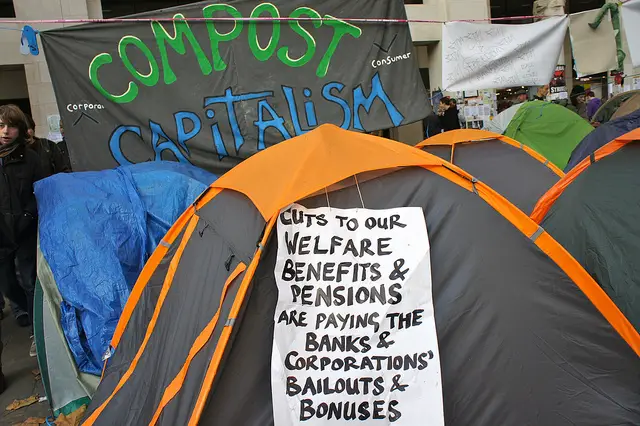 COMPOST
Corpora
Consumer
CAPITALISM
CUTS TO OUR
WELFARE
BENEFITS &
PENSIONS
ARE PAYING THE
BANKS &
CORPORATIONS'
BAILOUTS &
BONUSES